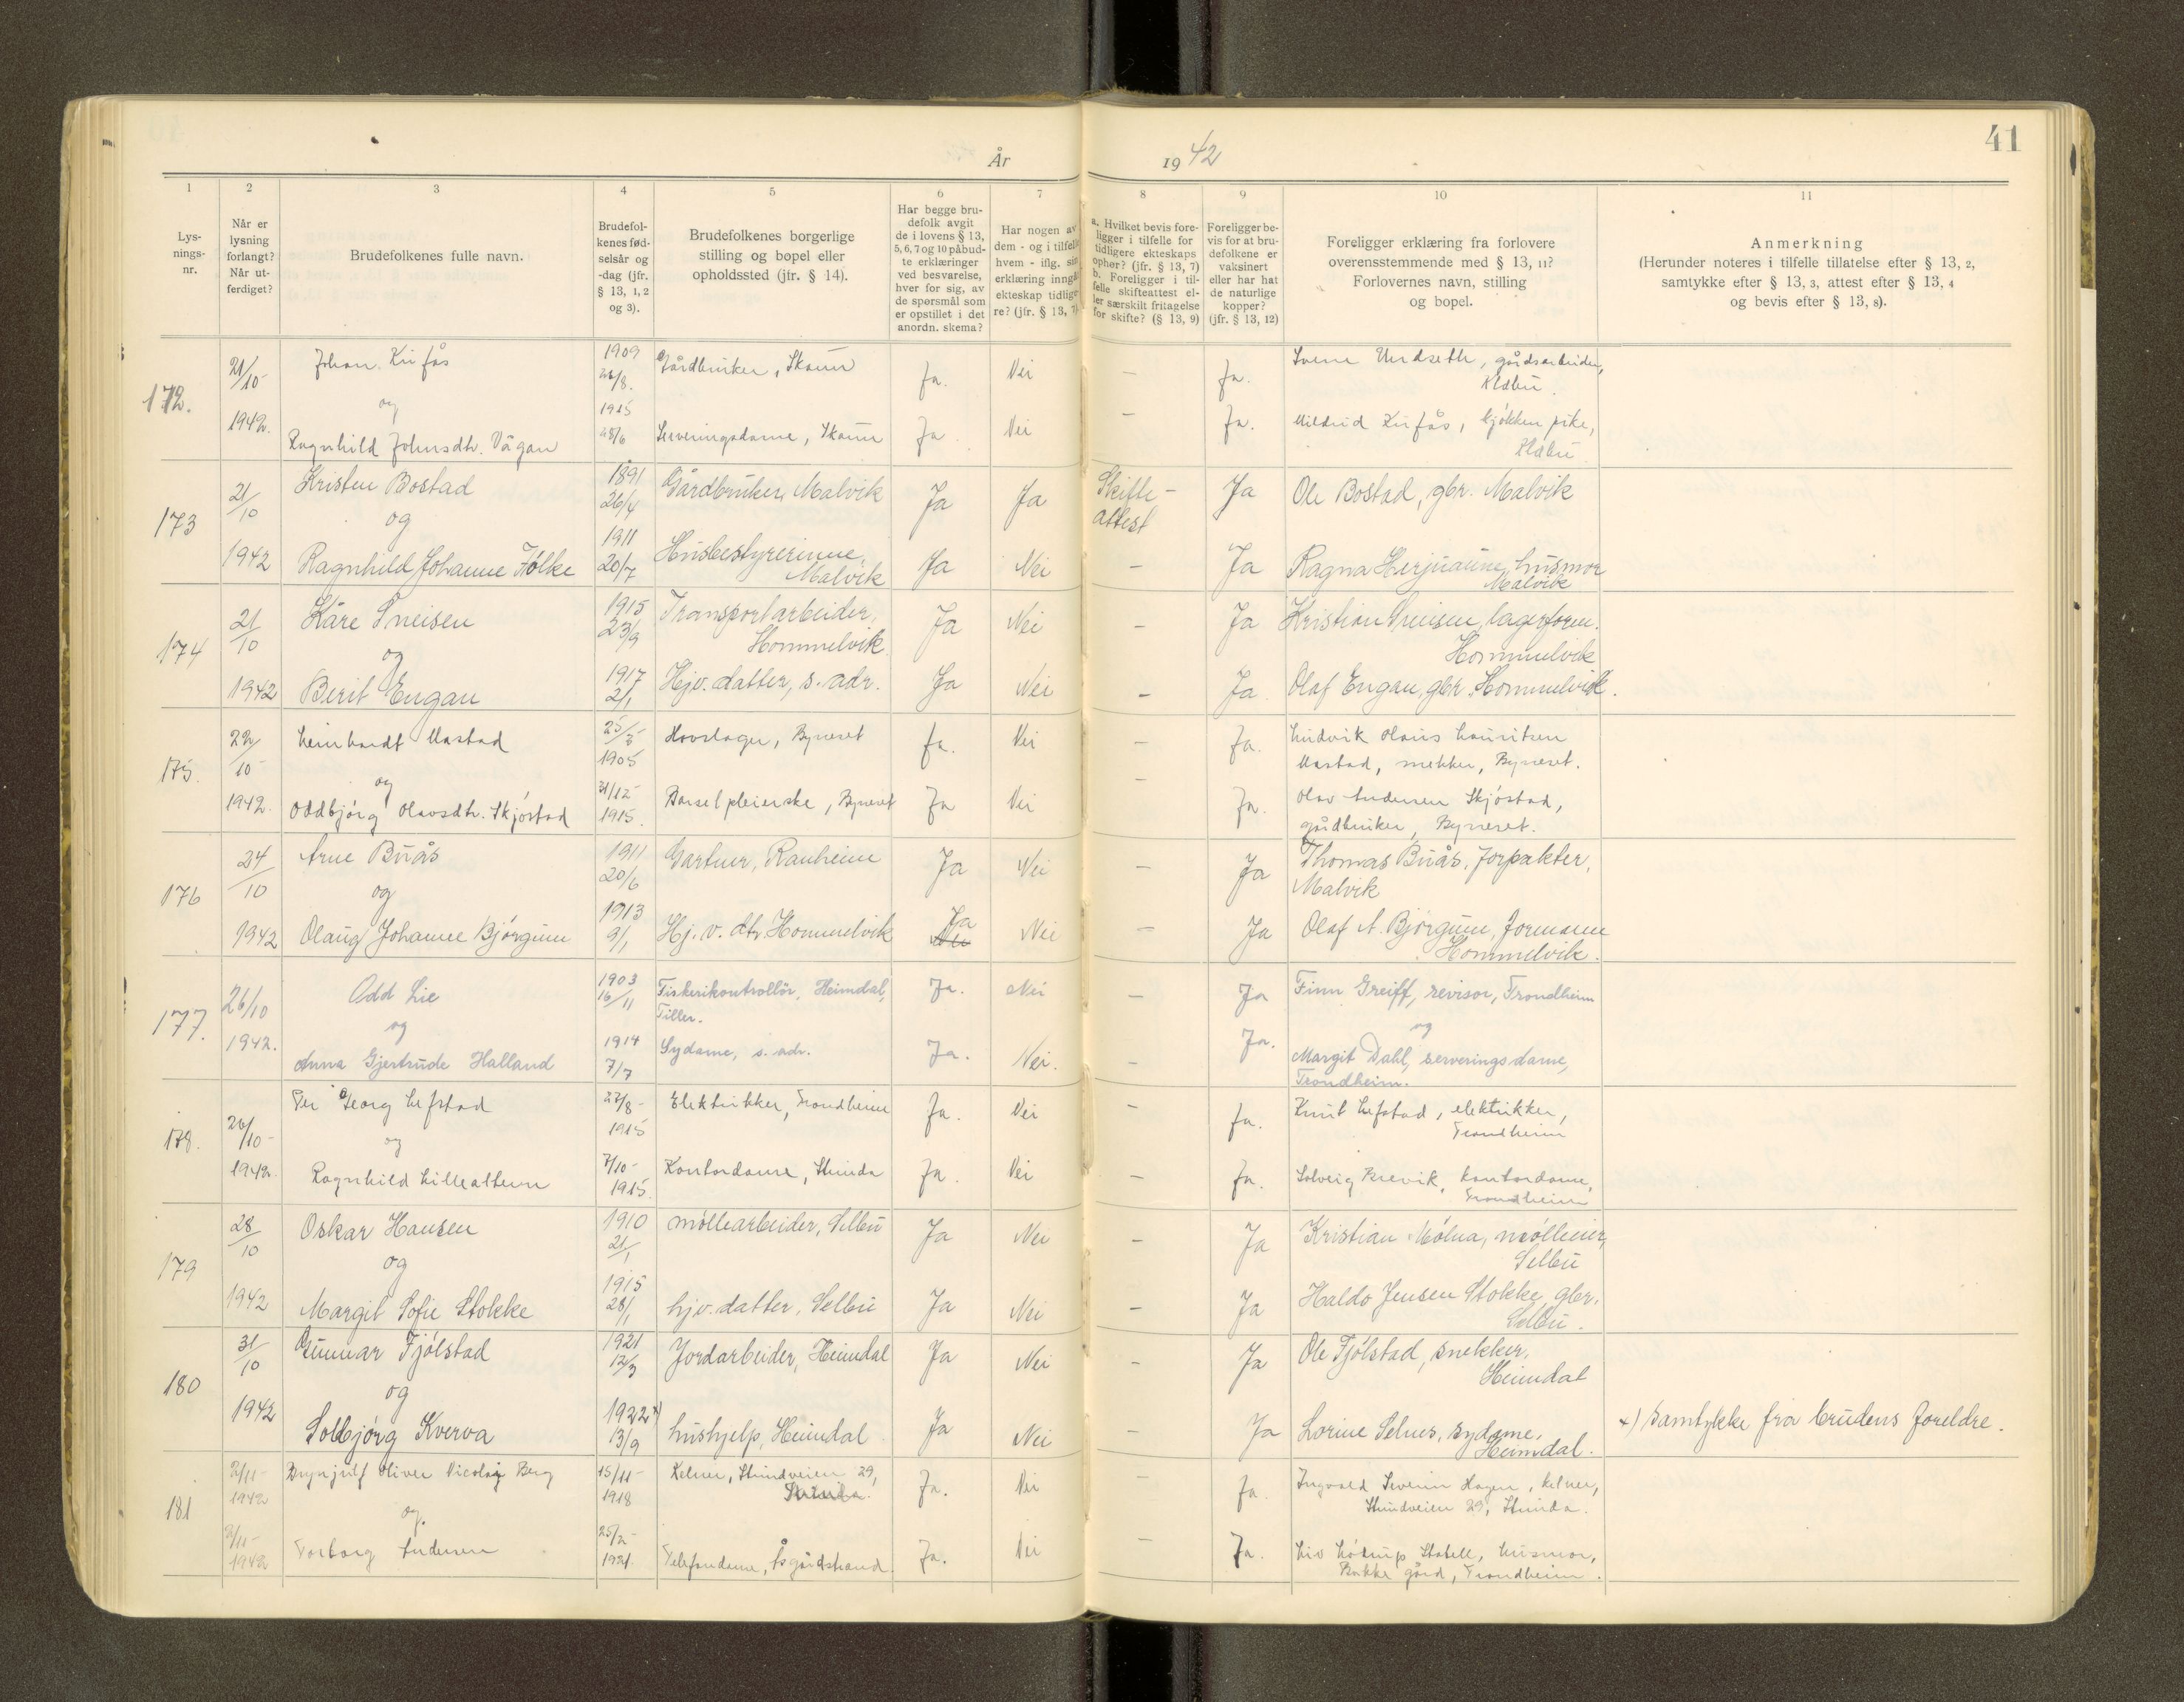 År 1942
41
1
2
3
4
5
6
7
8
9
10
11
Lys-
nings-
nr.
Når er
lysning
forlangt?
Når ut-
ferdiget?
Brudefolkenes fulle navn.
Brudefol-
kenes fød-
selsår og
-dag (jfr.
§ 13, 1, 2
og 3).
Brudefolkenes borgerlige
stilling og bopel eller
opholdssted (jfr. § 14).
Har begge bru-
defolk avgit
de i lovens § 13,
5, 6, 7 og 10 påbud-
te erklæringer
ved besvarelse,
hver for sig, av
de spørsmål som
er opstillet i det
anordn. skema?
Har nogen av
dem - og i tilfelle
hvem - iflg. sin
erklæring inngå
ekteskap tidlige-
re? (jfr. § 13, 7)
a. Hvilket bevis fore-
ligger i tilfelle for
tidligere ekteskaps
ophør? (jfr. § 13, 7)
b. Foreligger i til-
felle skifteattest el-
ler særskilt fritagelse
for skifte? (§ 13, 9)
Foreligger be-
vis for at bru-
defolkene er
vaksinert
eller har hat
de naturlige
kopper?
(jfr. § 13, 12)
Foreligger erklæring fra forlovere
overensstemmende med § 13, 11?
Forlovernes navn, stilling
og bopel.
Anmerkning
(Herunder noteres i tilfelle tillatelse efter § 13, 2,
samtykke efter § 13, 3, attest efter § 13, 4
og bevis efter § 13, 8).
172. 21/10- Johan 1909 Gårdbruker, Skaun Ja. Nei — Ja. gårdsarbeider,
Klæbu.
og
1942. Ragnhild Johnsdtr. Vågan 1915 Serveringsdame, Skaun Ja. Nei — Ja. kjøkkenpike,
Klæbu
173 21/10 Kristen Bostad 1891 26/4 Gårdbruker, Malvik Ja Ja Skifte-
attest Ja Ole Bostad, gbr. Malvik
og
1942 Ragnhild Johanne Følke 1911 20/7 Husbestyrerinne,
Malvik Ja Nei — Ja Ragna Herjuaune, husmor
Malvik
174 21/10 Kåre Sneisen 1915 23/9 Transportarbeider,
Hommelvik Ja Nei — Ja Kristian Sneisen, lagerform.
Hommelvik
og
1942 Berit Engan 1917 2/1 Hjv. datter, s. adr. Ja Nei — Ja Olaf Engan, gbr. Hommelvik.
175. 22/10- Leinhardt Mastad 25/3- 1905 Hovslager, Byneset Ja. Nei — Ja. Ludvik Olaus Lauritsen
Mastad, snekker, Byneset.
og
1942. Oddbjørg Olavsdtr. Skjøstad 31/12- 1915. Barselpleierske, Byneset Ja Nei — Ja. Olav Andersen Skjøstad,
gårdbruker, Byneset.
176 24/10 Arne Buås 1911 20/6 Gartner, Ranheim Ja Nei — Ja Thomas Buås, forpakter,
Malvik
og
1942 Olaug Johanne Bjørgum 1913 9/1 Hj. v. dtr. Hommelvik Ja Nei — Ja Olaf A. Bjørgum, formann
Hommelvik.
177. 26/10 Odd Lie 1903 16/11 Fiskerikontrollör, Heimdal,
Tiller. Ja. Nei — Ja Finn Greiff, revisor, Trondheim
og og
1942. Anna Gjertrude Halland 1914 7/7 Sydame, s. adr. Ja. Nei. — Ja. Margit Dahl, serveringsdame,
Trondheim.
178. 26/10- Per Georg Lefstad 27/8- 1915 Elektrikker, Trondheim Ja. Nei — Ja. Knut Lefstad, elektrikker,
Trondheim
og
1942. Ragnhild Lillealtern 7/10- 1915. Kontordame, Strinda Ja. Nei — Ja. Solveig Brevik, kontordame,
Trondheim
179 28/10 Oskar Hansen 1910 21/1 møllearbeider, Selbu Ja Nei — Ja Kristian Mølna, mølleeier,
Selbu
og
1942 Margit Sofie Stokke 1915 28/1 hjv. datter, Selbu Ja Nei — Ja Haldo Jensen Stokke gbr.
Selbu.
180 31/10 Gunnar Fjølstad 1921 12/3 Jordarbeider, Heimdal Ja Nei — Ja Ole Fjølstad, snekker,
Heimdal
og
1942 Solbjørg Kverva 1922 x) 13/9 hushjelp, Heimdal Ja Nei — Ja Lorine Selnes, sydame,
Heimdal. x) Samtykke fra brudens foreldre.
181 2/11- 1942 Brynjulf Oliver Nicolay Berg 15/11- 1918 Kelner, Strindveien 29,
Strinda. Ja. Nei Ja. Ingvald Severin Hagen, kelner,
Strindveien 29, Strinda.
og.
2/11- 1942 Torborg Andersen 25/2- 1921. Telefondame, Åsgårdstrand. Ja. Nei — Ja. Liv Lødrup Stabell, husmor,
Bakke gård, Trondheim.